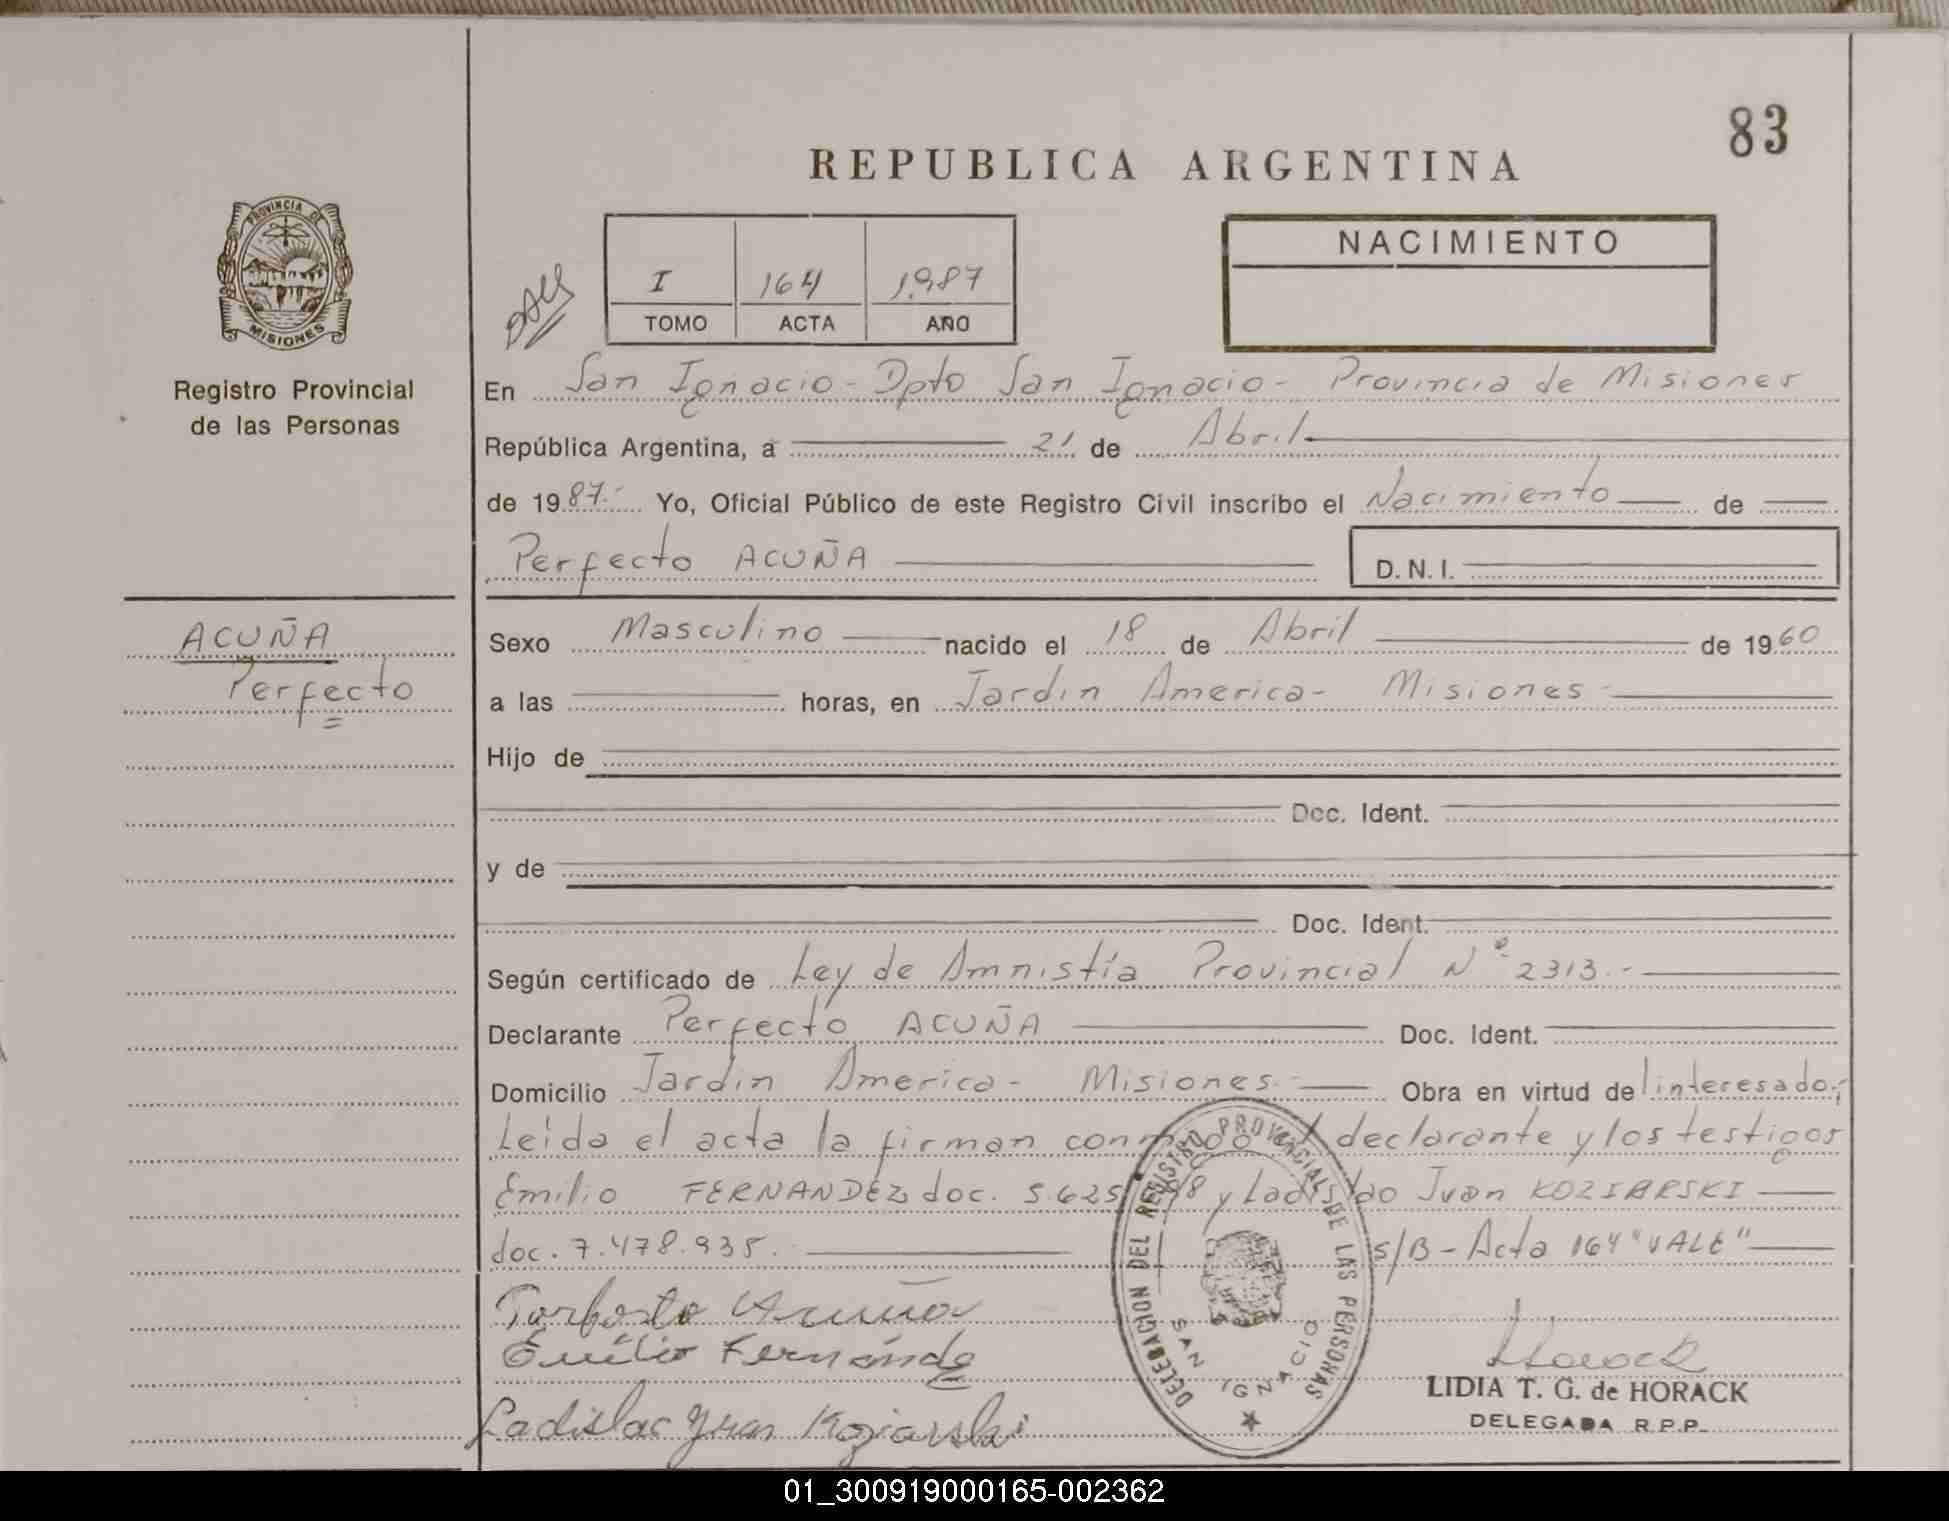 83
REPUBLICA ARGENTINA
PROVINCIA DE
MISIONES
Registro Provincial
de las Personas
I 164 1987
TOMO ACTA AÑO
NACIMIENTO
En San Ignacio - Dpto San Ignacio - Provincia de Misiones
República Argentina, a 21 de Abril
de 1987.- Yo, Oficial Público de este Registro Civil inscribo el Nacimiento de
Perfecto ACUÑA D.N.I.
ACUÑA
Perfecto
Sexo Masculino nacido el 18 de Abril de 1960
a las horas, en Jardin America - Misiones -
Hijo de
Doc. Ident.
y de
Doc. Ident.
Según certificado de Ley de Amnistía Provincial Nº 2313.-
Declarante Perfecto ACUÑA Doc. Ident.
Domicilio Jardin America - Misiones.- Obra en virtud del interesado;
Leida el acta la firman conmigo el declarante y los testigos
Emilio FERNANDEZ doc. 5.625 y Ladislao Juan KOZIARSKI
doc. 7.478.935. s/B - Acta 164 "VALE"
Acuña
Emilio Fernandez
Ladislao Juan Koziarski
DELEGACION DEL REGISTRO PROVINCIAL DE LAS PERSONAS
SAN IGNACIO
Horack
LIDIA T. G. de HORACK
DELEGADA R.P.P.
01_300919000165-002362